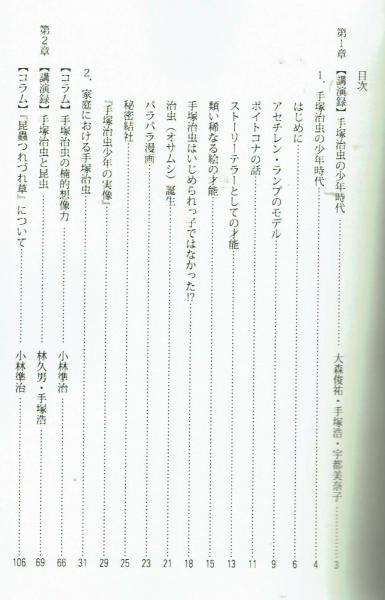 目次
第1章 【講演録】手塚治虫の少年時代……大森俊祐・手塚浩・宇都美奈子……3
1．手塚治虫の少年時代……4
はじめに……6
アセチレン・ランプのモデル……9
ポイトコナの話……11
ストーリーテラーとしての才能……13
類い稀なる絵の才能……15
手塚治虫はいじめられっ子ではなかった!?……18
治虫（オサムシ）誕生……21
パラパラ漫画……23
秘密結社……25
『手塚治虫少年の実像』……29
2．家庭における手塚治虫……31
【コラム】手塚治虫の楠的想像力……小林準治……66
第2章 【講演録】手塚治虫と昆虫……林久男・手塚浩……69
【コラム】『昆蟲つれづれ草』について……小林準治……106